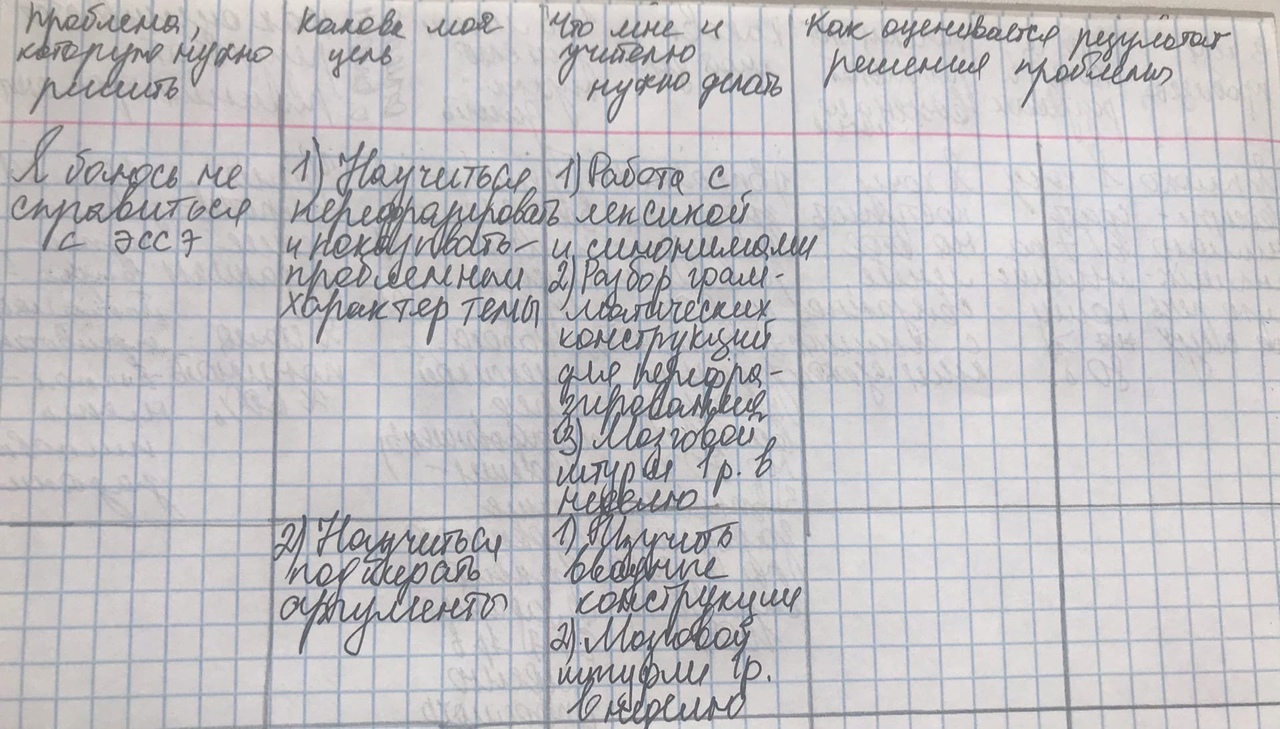 проблема,
которую нужно
решить
Какова моя
цель
Что мне и
учителю
нужно делать
Как оценивается результат
решения проблемы
Я боюсь не
справиться
с эссэ
1) Научиться
перефразировать
и показывать
проблемный
характер темы
1) Работа с
лексикой
и синонимами
2) Разбор грам-
матических
конструкций
для перефра-
зирования
3) Мозговой
штурм 1 р. в
неделю
2) Научиться
подбирать
аргументы
1) Изучить
вводные
конструкции
2) Мозговой
штурм 1р.
в неделю